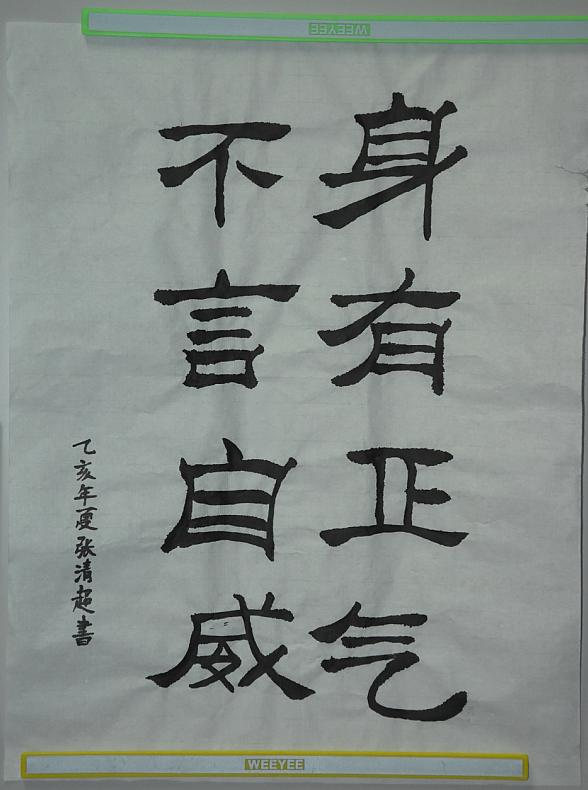 WEEYEE
身有正气
不言自威
乙亥年夏张清超书
WEEYEE